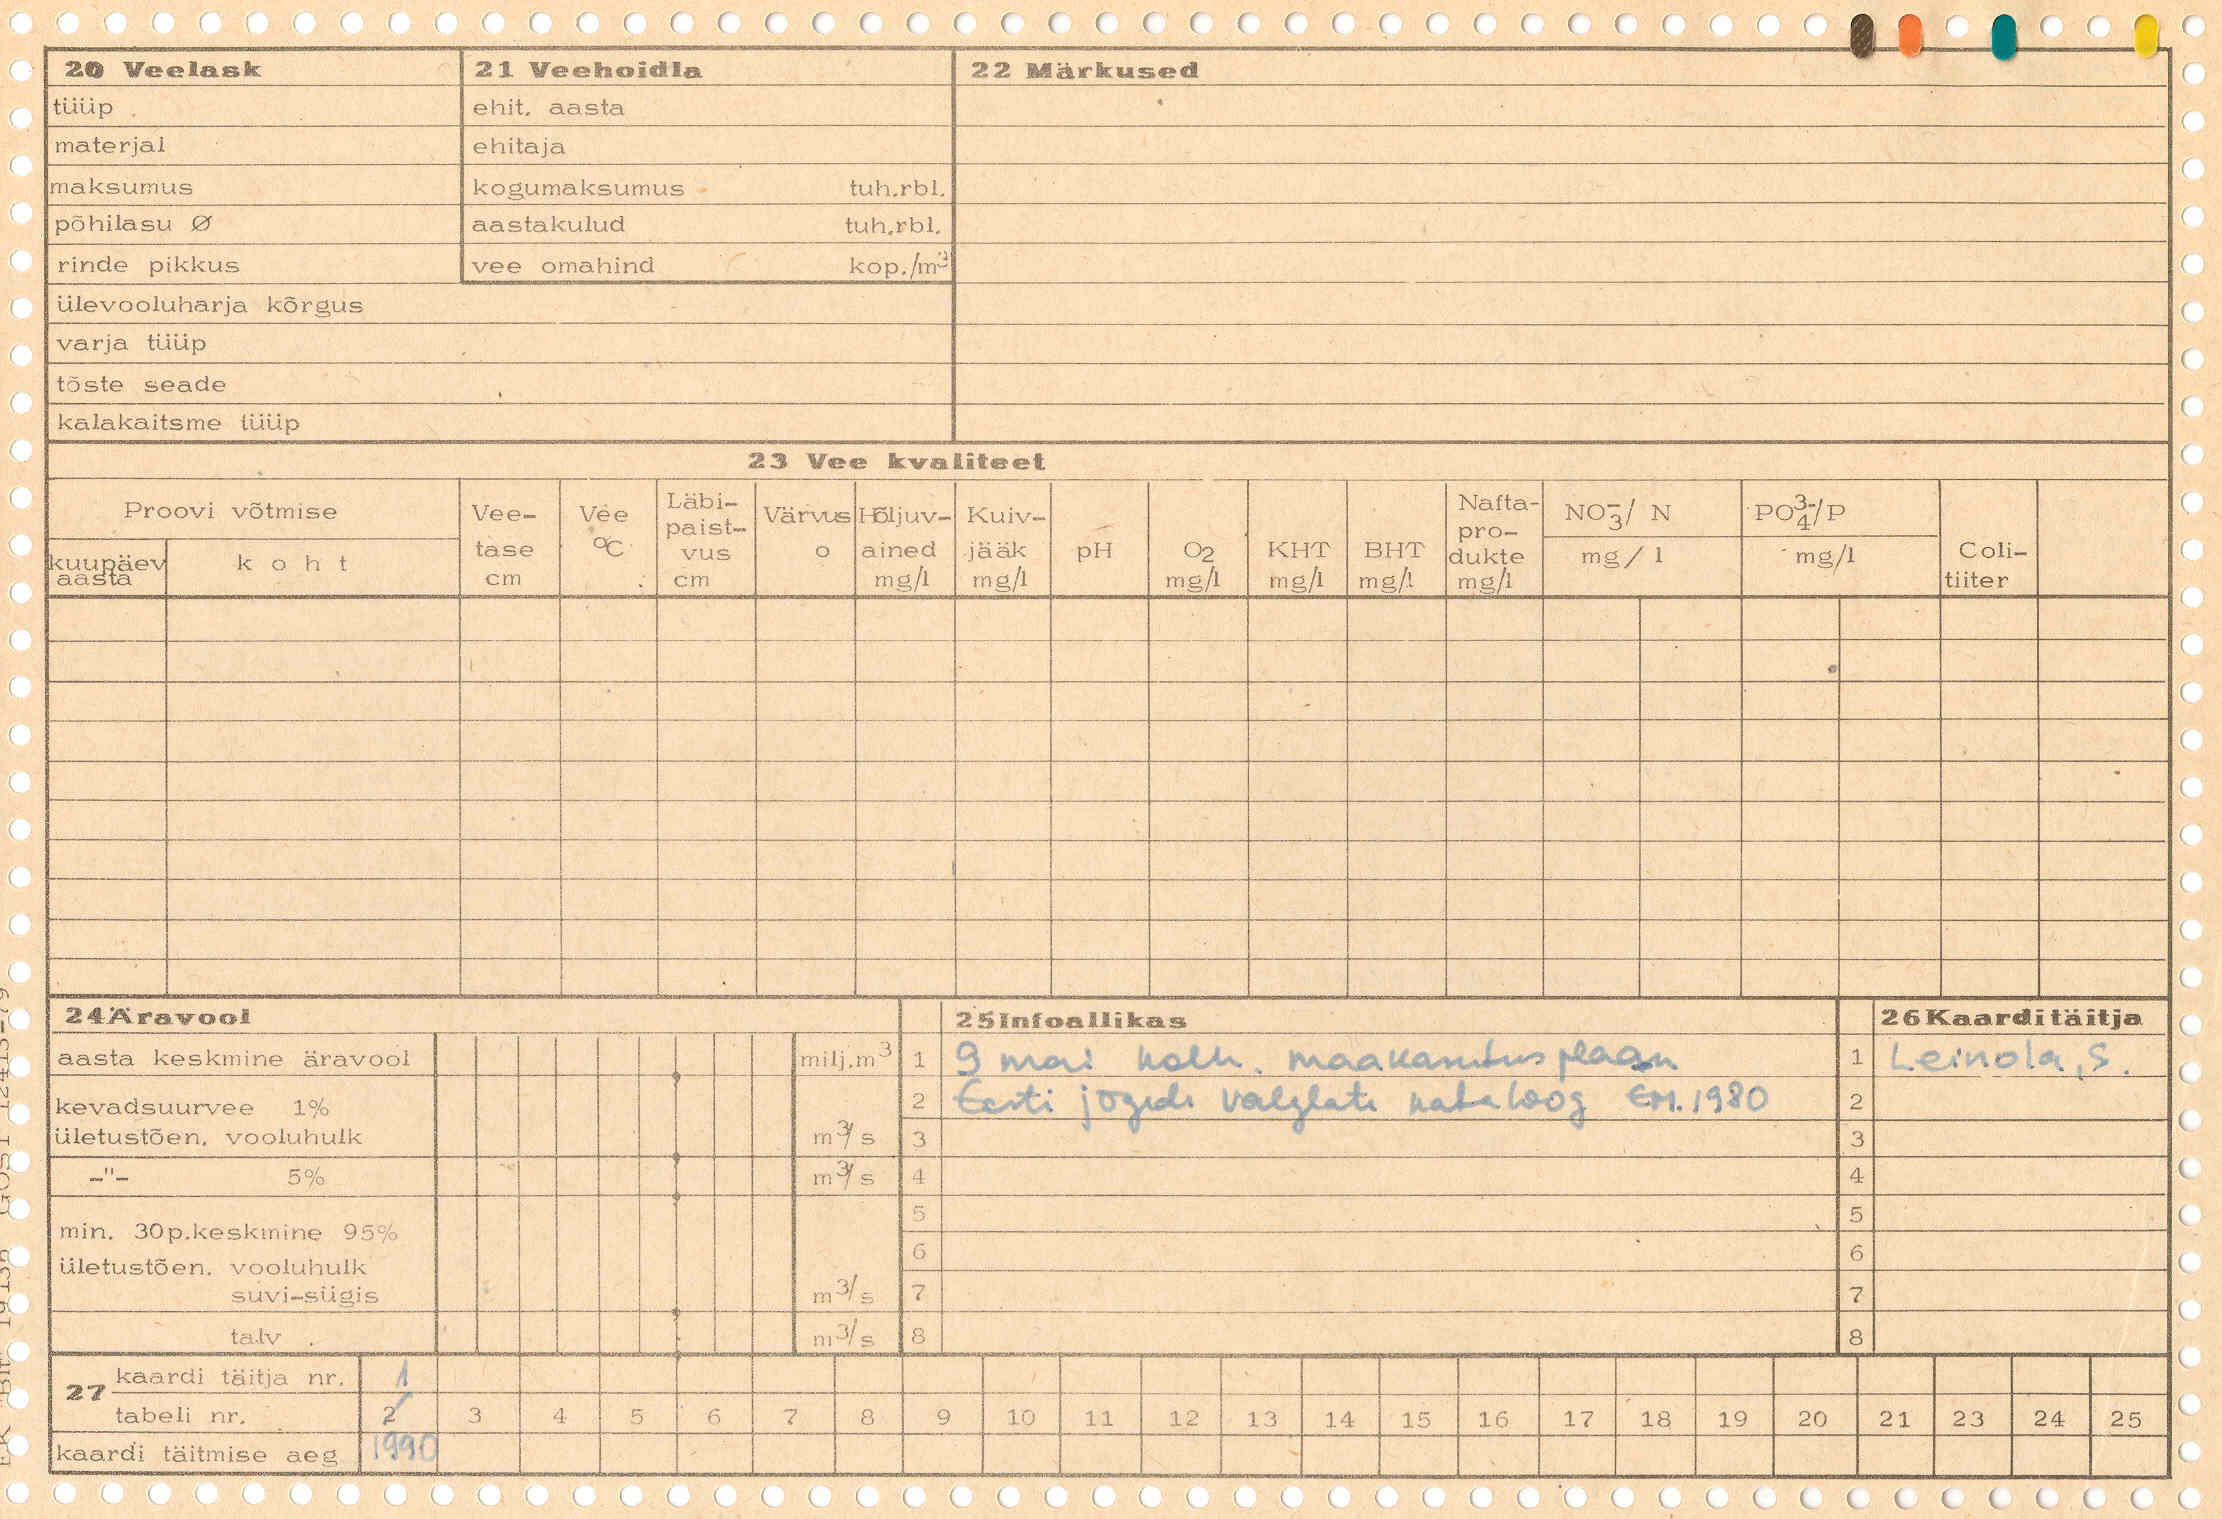 20 Veelask
tüüp
materjal
maksumus
põhilasu Ø
rinde pikkus
ülevooluharja kõrgus
varja tüüp
tõste seade
kalakaitsme tüüp
21 Veehoidla
ehit. aasta
ehitaja
kogumaksumus tuh.rbl.
aastakulud tuh.rbl.
vee omahind kop./m³
22 Märkused
23 Vee kvaliteet
Proovi võtmise
kuupäev aasta
koht
Vee-tase cm
Vee °C
Läbi-paist-vus cm
Värvus o
Hõljuv-ained mg/l
Kuiv-jääk mg/l
pH
O2 mg/l
KHT mg/l
BHT mg/l
Nafta-pro-dukte mg/l
NO3-/ N mg/l
PO4 3-/P mg/l
Coli-tiiter
24 Äravool
aasta keskmine äravool milj.m³
kevadsuurvee 1%
ületustõen. vooluhulk m³/s
-"- 5% m³/s
min. 30p.keskmine 95%
ületustõen. vooluhulk
suvi-sügis m³/s
talv m³/s
25 Infoallikas
1 9 mai kolh. maakasutusplaan
2 Eesti jõgede valglate kataloog EM. 1980
3
4
5
6
7
8
26 Kaarditäitja
1 Leinola, S.
2
3
4
5
6
7
8
27
kaardi täitja nr. 1
tabeli nr. 2 3 4 5 6 7 8 9 10 11 12 13 14 15 16 17 18 19 20 21 23 24 25
kaardi täitmise aeg 1990